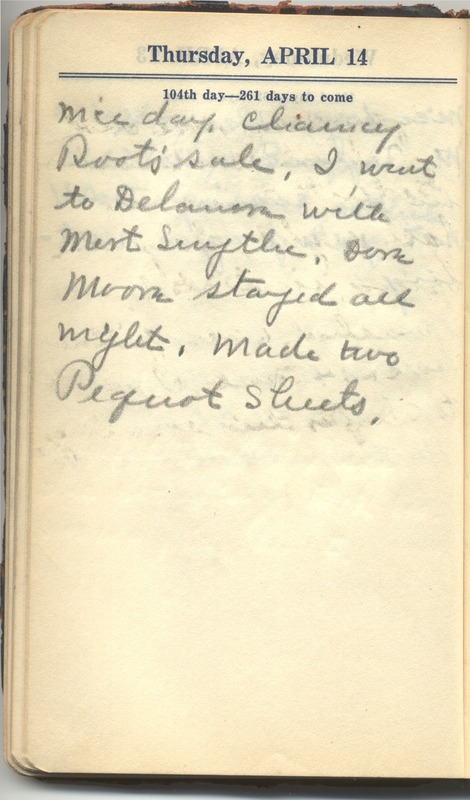 Thursday, APRIL 14
104th day—261 days to come
Nice day, Chancy
Root's sale, I went
to Delanson with
Mert Smythe, Dora
Moore stayed all
night. Made two
Pequot Sheets.